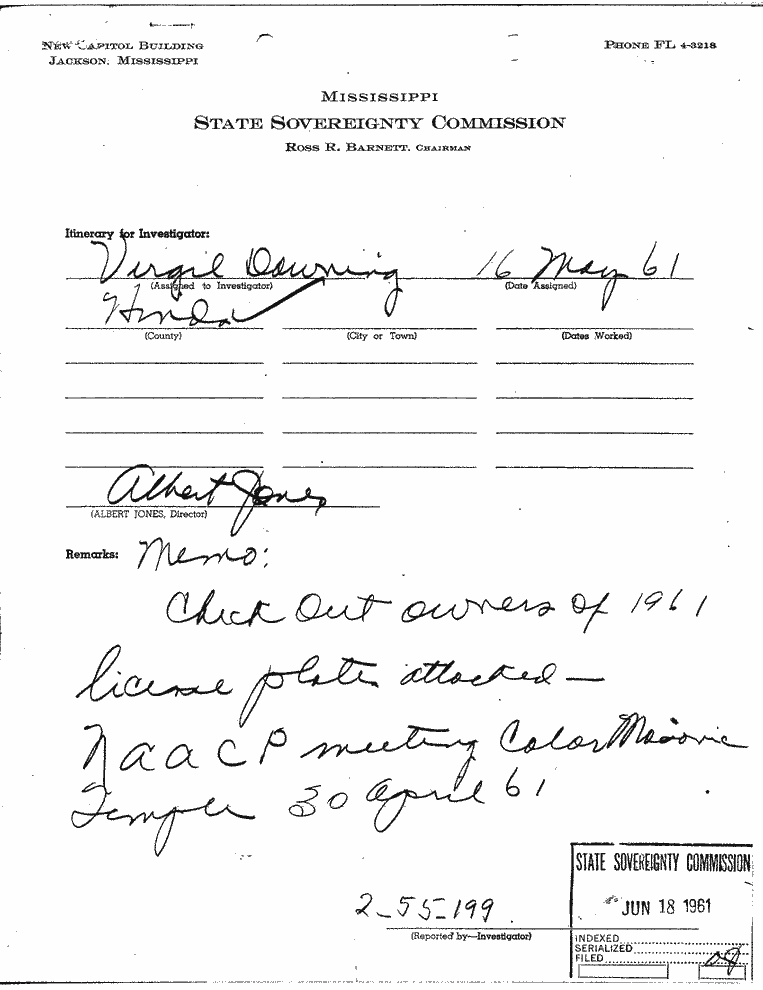 NEW CAPITOL BUILDING
JACKSON, MISSISSIPPI
PHONE FL 4-3218
MISSISSIPPI
STATE SOVEREIGNTY COMMISSION
ROSS R. BARNETT, CHAIRMAN
Itinerary for Investigator:
Virgil Downing 16 May 61
(Assigned to Investigator) (Date Assigned)
Hinds
(County) (City or Town) (Dates Worked)
Albert Jones
(ALBERT JONES, Director)
Remarks: Memo:
Check out owners of 1961
license plates attached —
NAACP meeting Color Masonic
Temple 30 April 61
STATE SOVEREIGNTY COMMISSION
JUN 18 1961
2-55-199
(Reported by—Investigator)
INDEXED
SERIALIZED
FILED